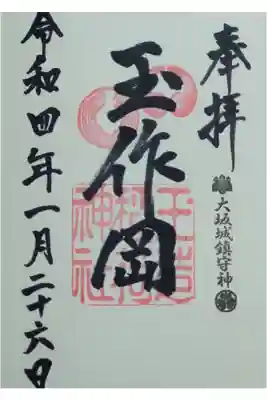 奉拝
大坂城鎮守神
玉作岡
玉造稲荷神社
令和四年一月二十六日